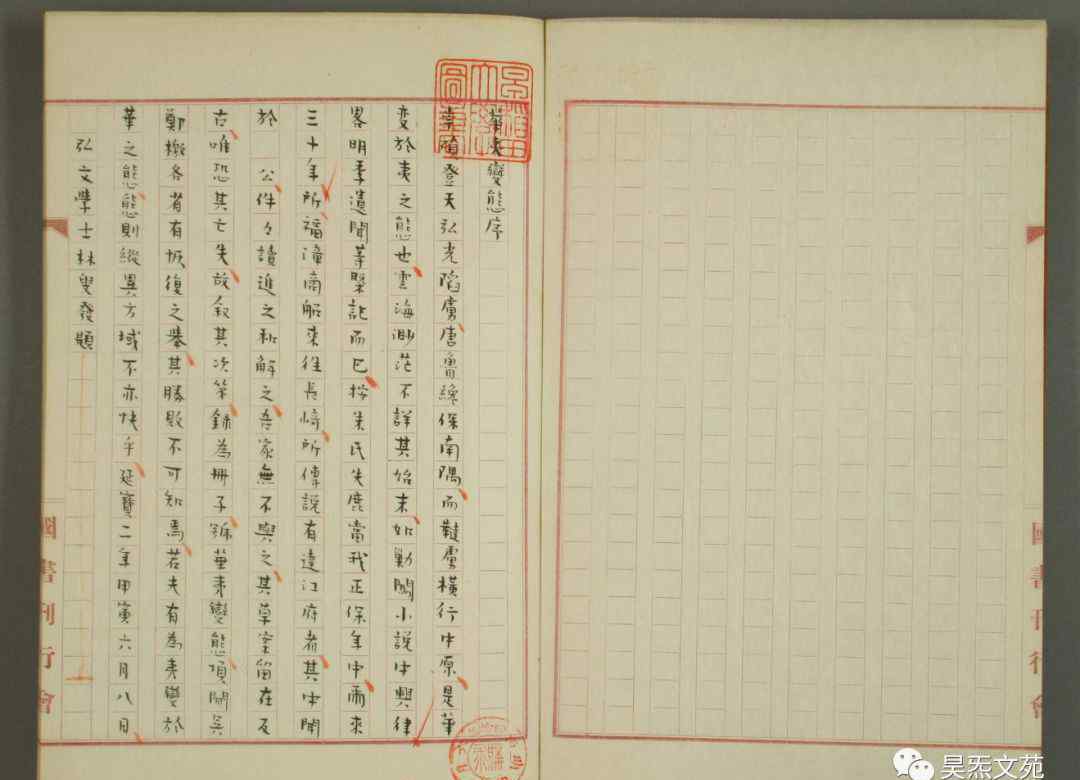 國書刊行會
華夷變態序
崇禎登天弘光陷虜唐魯纔保南隅而韃虜橫行中原是華
變於夷之態也雲海渺茫不詳其始末如勦闖小説中興律
畧明季遺聞等槩記而已按朱氏失鹿當我正保年中爾來
三十年所福漳商船來往長崎所傳説有達江府者其中聞
於 公件々讀進之和解之吾家無不與之其草案留在及
古唯恐其亡失故叙其次第錄為冊子號華夷變態頃聞吳
鄭檄各省有恢復之舉其勝敗不可知焉若夫有為夷變於
華之態態則縱異方域不亦快乎延寶二年甲寅六月八日
弘文學士林叟發題
國書刊行會
昊炁文苑